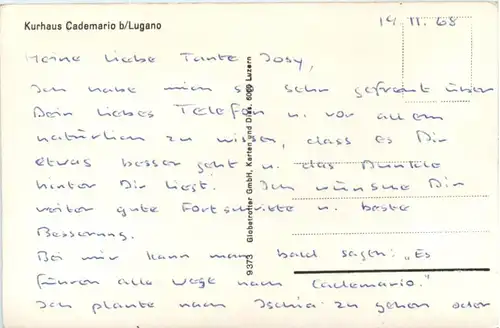 Kurhaus Cademario b/Lugano
19.11.68
Meine liebe Tante Josy,
Ich habe mich so sehr gefreut über
Dein liebes Telefon u. vor allem
natürlich zu wissen, dass es Dir
etwas besser geht u. das Dunkle
hinter Dir liegt. Ich wünsche Dir
weiter gute Fortschritte u. beste
Besserung.
Bei mir kann man bald sagen: "Es
führen alle Wege nach Cademario."
Ich plante nach Ischia zu gehen oder
9373 Globetrotter GmbH, Karten und Dias, 6009 Luzern